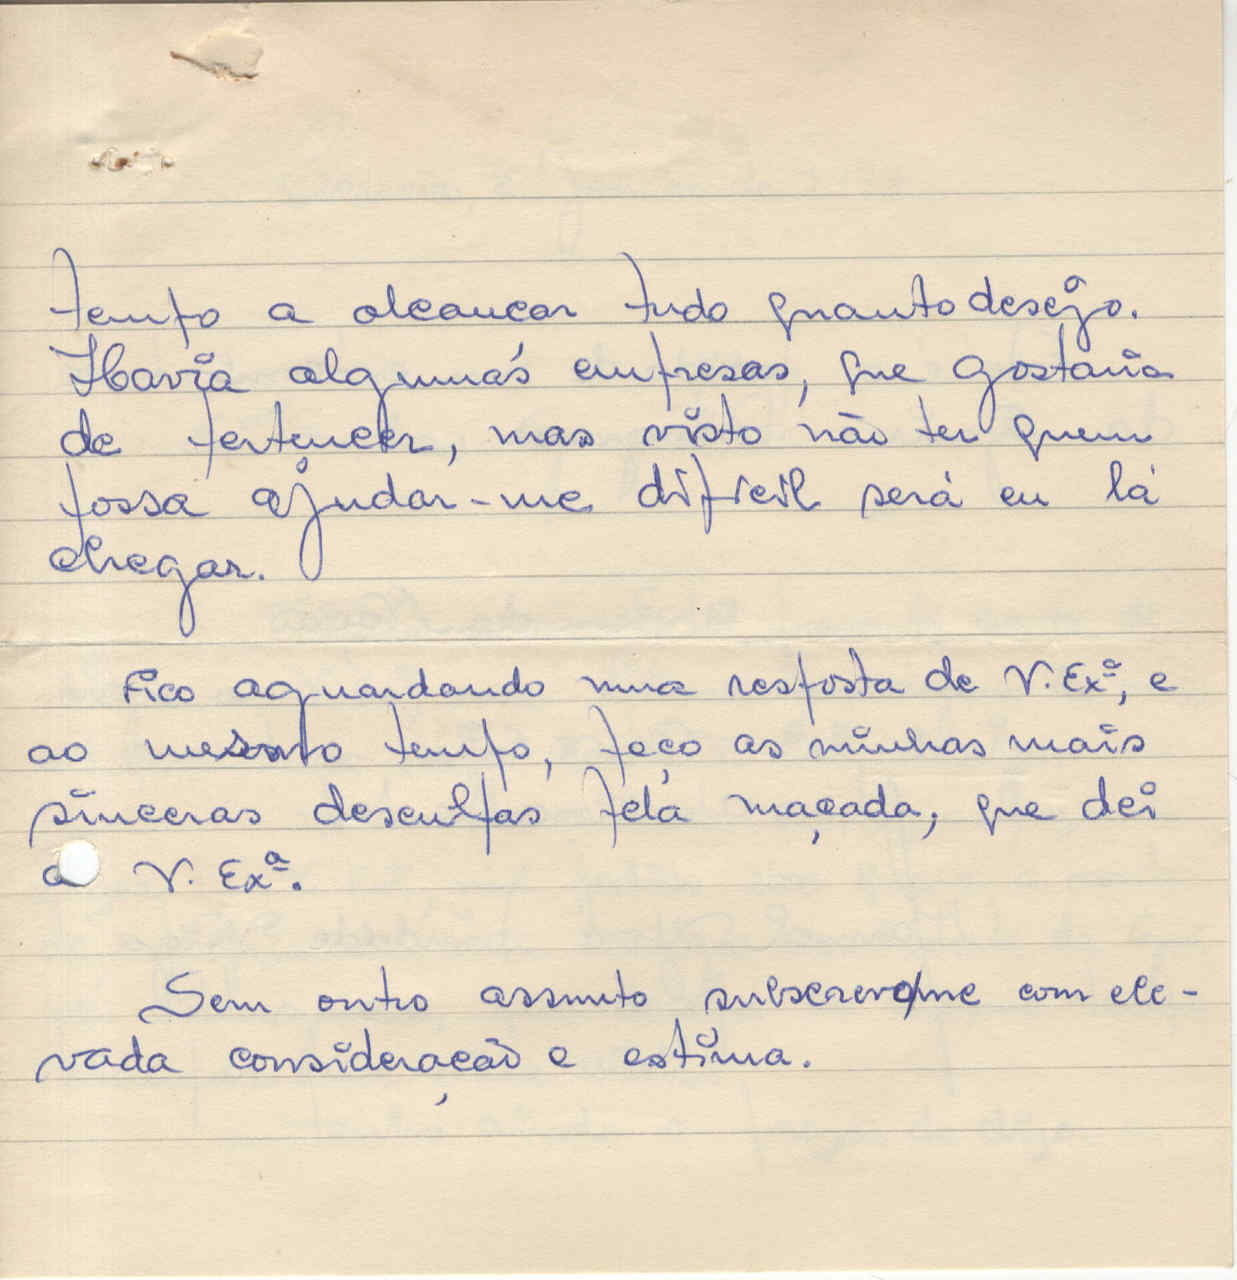 tempo a alcançar tudo quanto desejo.
Havia algumas empresas, que gostaria
de pertencer, mas visto não ter quem
possa ajudar-me difícil será eu lá
chegar.
Fico aguardando uma resposta de V. Exª, e
ao mesmo tempo, peço as minhas mais
sinceras desculpas pela maçada, que dei
a V. Exª.
Sem outro assunto subscrevo/me com ele-
vada consideração e estima.